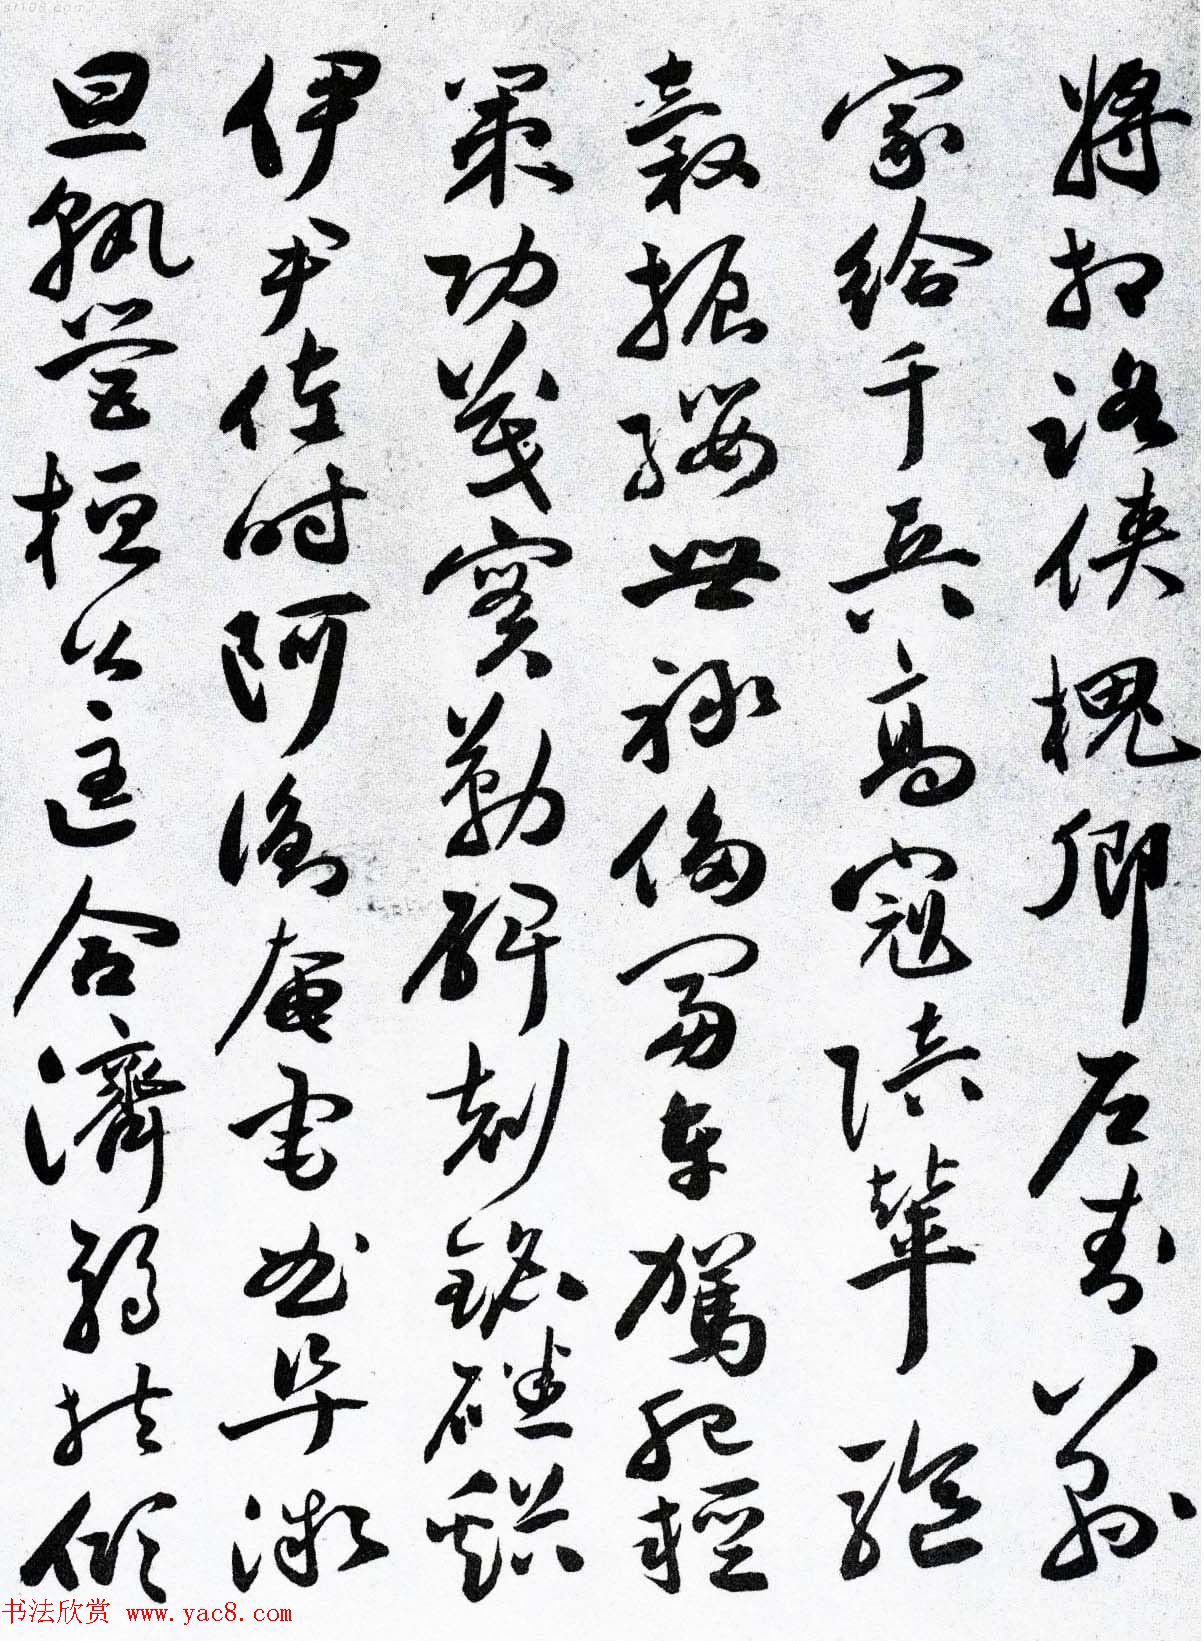 將相路俠槐卿戶封八縣
家給千兵高冠陪輦驅
轂振纓世祿侈富車駕肥輕
策功茂實勒碑刻銘磻溪
伊尹佐時阿衡奄宅曲阜微
旦孰營桓公匡合濟弱扶傾
书法欣赏 www.yac8.com